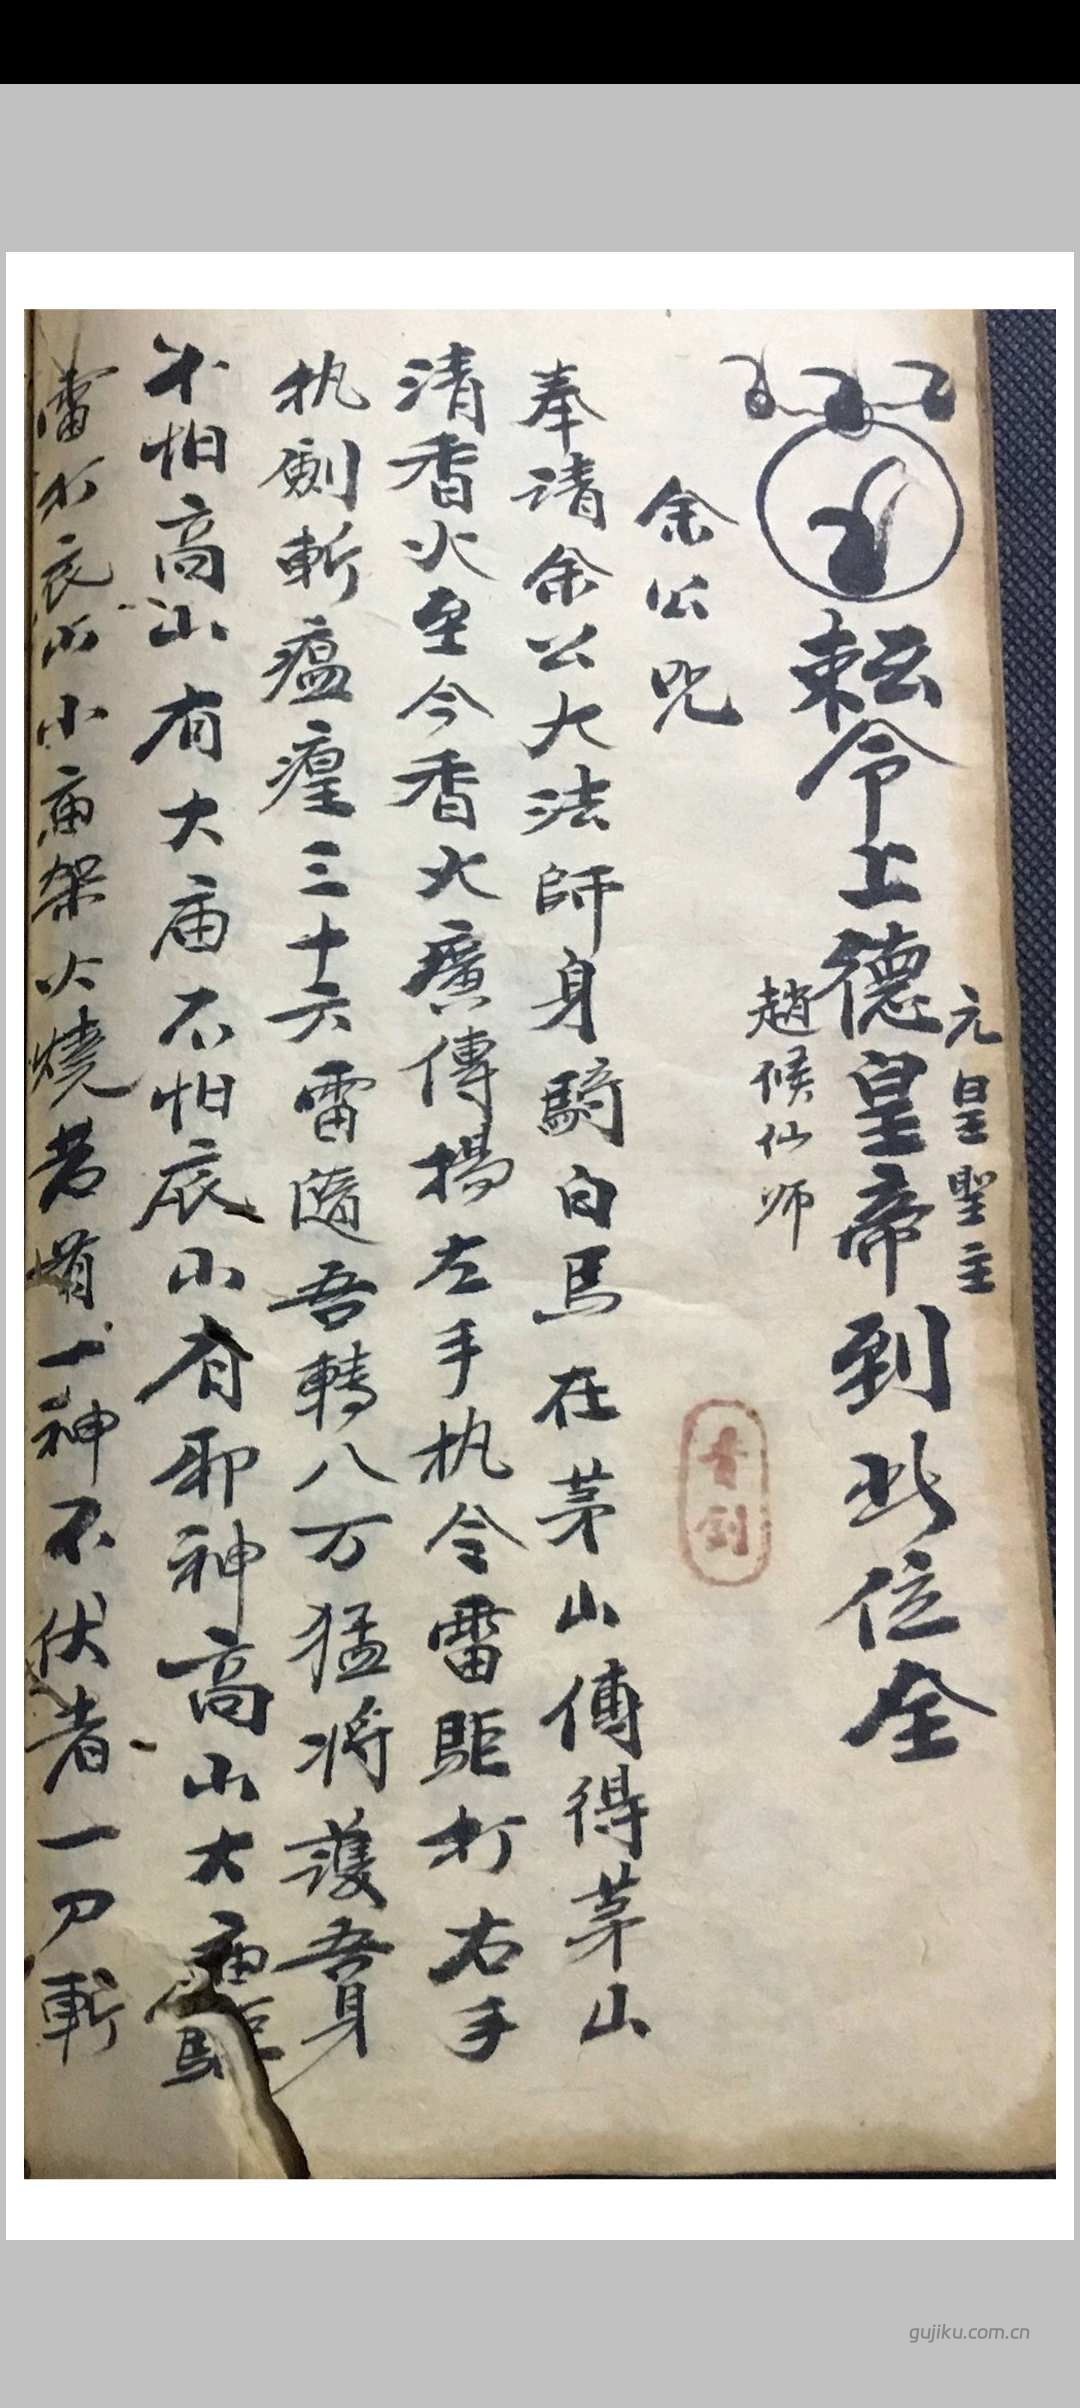 元皇聖主
勅令上德皇帝到此位全
趙候仙师
余公咒
奉請余公大法師身騎白馬在茅山傳得茅山
清香火至今香火癀傳揚左手执令雷駏打右手
执劍斬瘟瘽三十六雷隨吾轉八万猛将護吾身
不怕高山有大庙不怕底山有邪神高山大庙
雷打底山小庙架火燒若有一神不伏者一刀斬
gujiku.com.cn